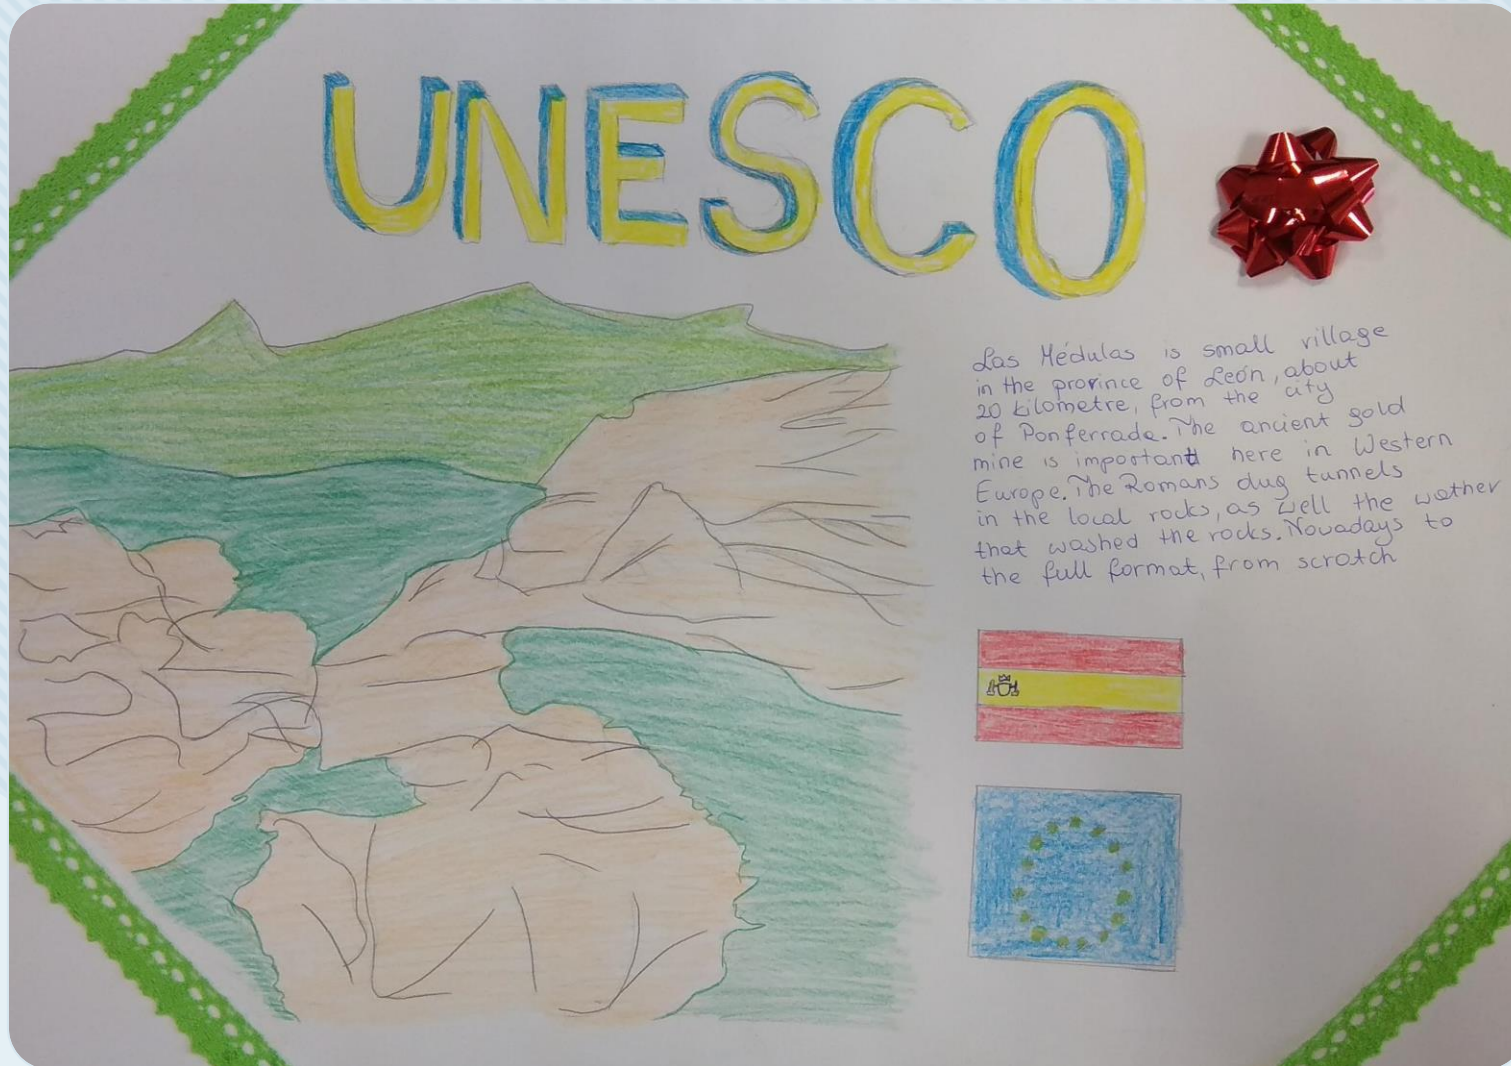 UNESCO
Las Médulas is small village
in the province of León, about
20 kilometre, from the city
of Ponferrada. The ancient gold
mine is important here in Western
Europe. The Romans dug tunnels
in the local rocks, as well the wather
that washed the rocks. Nowadays to
the full format, from scratch